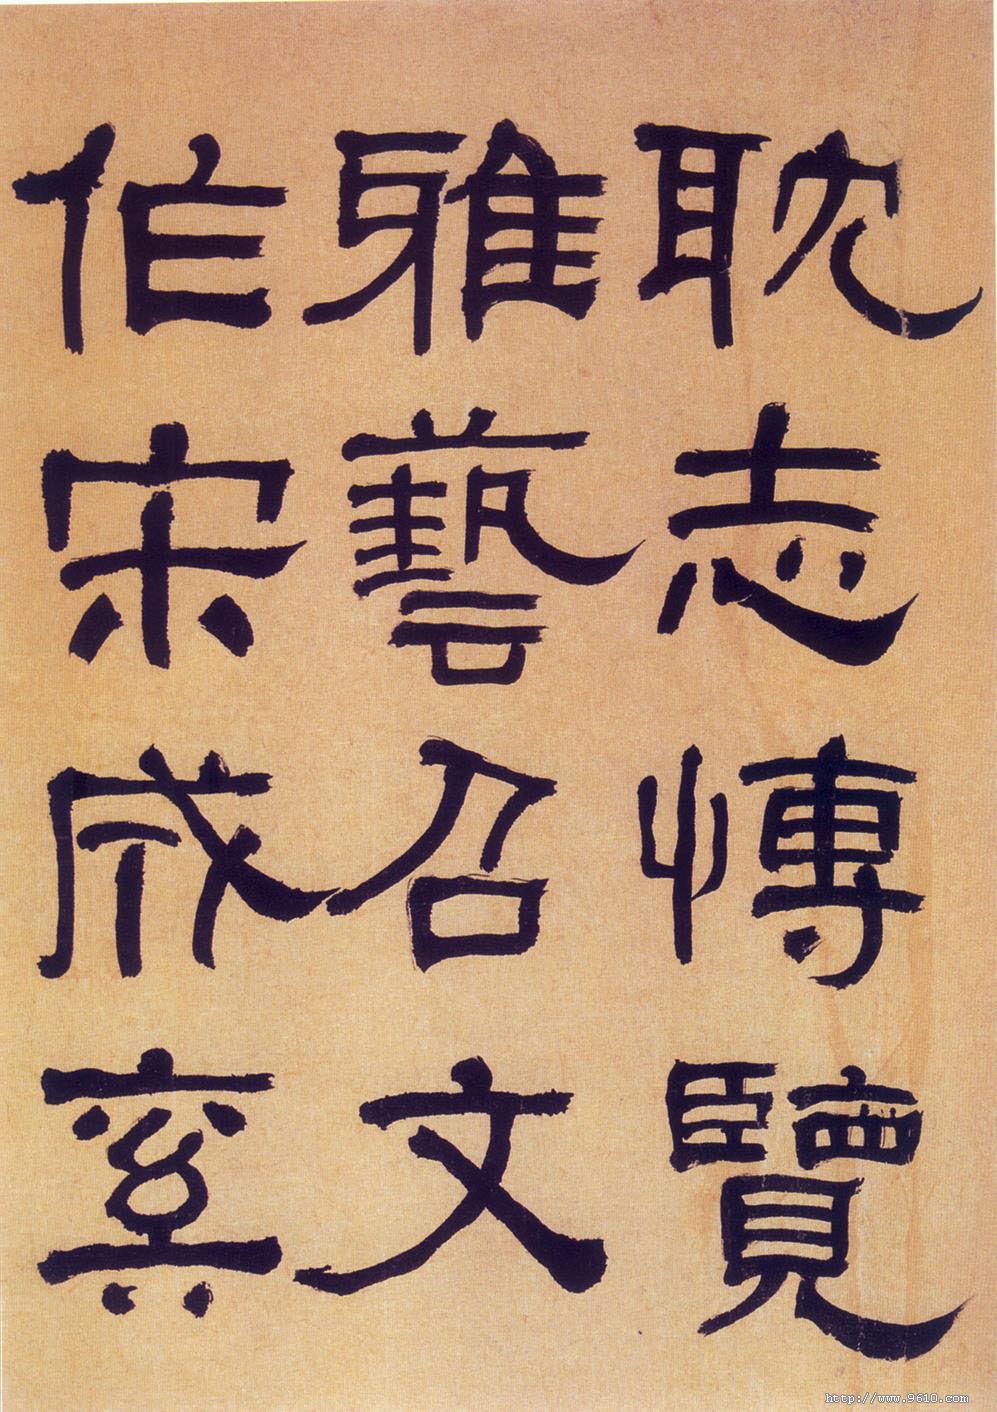 耽志愽覽
雅藝召文
作宋成
http://www.9610.com